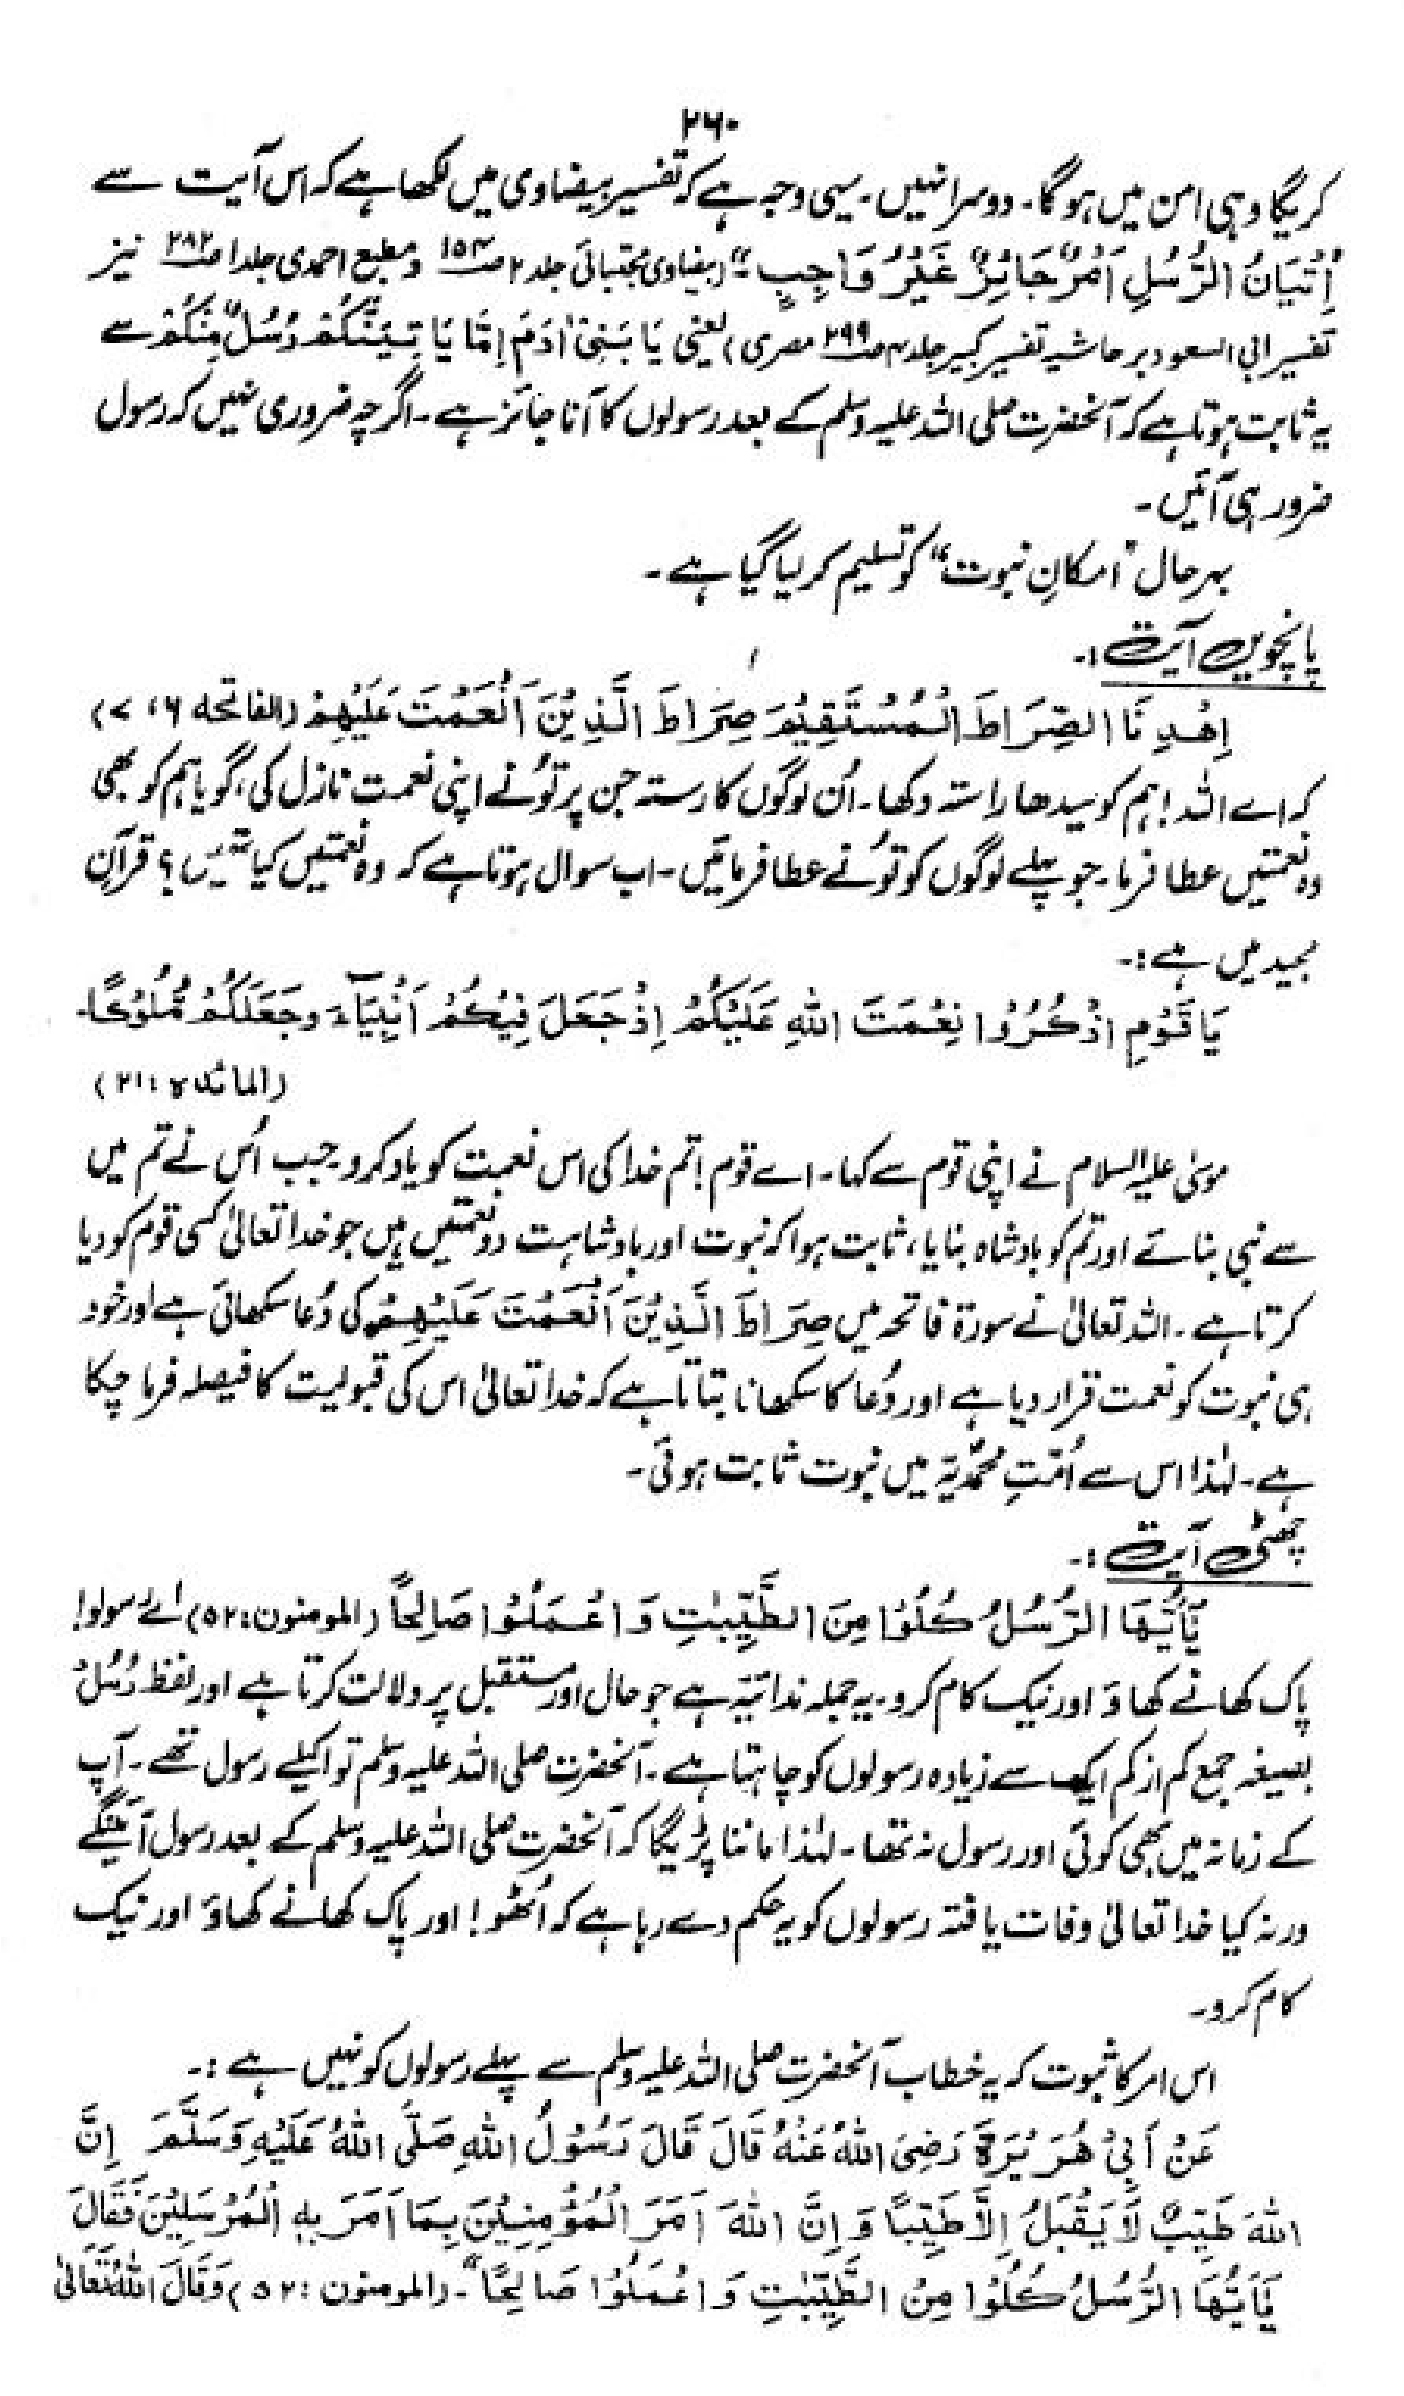 ۲۶۰
کریگا وہی امن میں ہوگا۔ دوسرا نہیں۔ یہی وجہ ہے کہ تفسیر بیضاوی میں لکھا ہے کہ اس آیت سے
"اِتْيَانُ الرُّسُلِ اَمْرٌ جَائِزٌ غَيْرُ وَاجِبٍ"۔ (بیضاوی مجتبائی جلد ۲ ص۱۵۳ و مطبع احمدی جلد ۱ ص۲۸۲ نیز
تفسیر ابی السعود بر حاشیہ تفسیر کبیر جلد ۴ ص۲۹۹ مصری) یعنی يَا بَنِيْ اٰدَمَ اِمَّا يَاتِيَنَّكُمْ رُسُلٌ مِّنْكُمْ سے
یہ ثابت ہوتا ہے کہ آنحضرت صلی اللہ علیہ وسلم کے بعد رسولوں کا آنا جائز ہے۔ اگرچہ ضروری نہیں کہ رسول
ضرور ہی آئیں۔
بہرحال "امکانِ نبوت" کو تسلیم کر لیا گیا ہے۔
پانچویں آیت :۔
اِهْدِنَا الصِّرَاطَ الْمُسْتَقِيْمَ صِرَاطَ الَّذِيْنَ اَنْعَمْتَ عَلَيْهِمْ (الفاتحہ ۶، ۷)
کہ اے اللہ! ہم کو سیدھا راستہ دکھا۔ اُن لوگوں کا رستہ جن پر تُو نے اپنی نعمت نازل کی، گویا ہم کو بھی
وہ نعمتیں عطا فرما۔ جو پہلے لوگوں کو تُو نے عطا فرمائیں۔ اب سوال ہوتا ہے کہ وہ نعمتیں کیا تھیں؟ قرآن
مجید میں ہے :۔
يَا قَوْمِ اذْكُرُوْا نِعْمَتَ اللهِ عَلَيْكُمْ اِذْ جَعَلَ فِيْكُمْ اَنْبِيَآءَ وَجَعَلَكُمْ مُّلُوْكًا۔
(المائدہ : ۲۱)
موسیٰ علیہ السلام نے اپنی قوم سے کہا۔ اے قوم! تم خدا کی اس نعمت کو یاد کرو۔ جب اُس نے تم میں
سے نبی بنائے اور تم کو بادشاہ بنایا، ثابت ہوا کہ نبوت اور بادشاہت دو نعمتیں ہیں جو خدا تعالیٰ کسی قوم کو دیا
کرتا ہے۔ اللہ تعالیٰ نے سورۃ فاتحہ میں صِرَاطَ الَّذِيْنَ اَنْعَمْتَ عَلَيْهِمْ کی دُعا سکھائی ہے اور خود
ہی نبوت کو نعمت قرار دیا ہے اور دُعا کا سکھانا بتاتا ہے کہ خدا تعالیٰ اس کی قبولیت کا فیصلہ فرما چکا
ہے۔ لہٰذا اس سے اُمتِ محمدیہؐ میں نبوت ثابت ہوئی۔
چھٹی آیت :۔
يٰٓاَيُّهَا الرُّسُلُ كُلُوْا مِنَ الطَّيِّبٰتِ وَاعْمَلُوْا صَالِحًا (المومنون : ۵۲) اے رسولو!
پاک کھانے کھاؤ اور نیک کام کرو۔ یہ جملہ ندائیہ ہے جو حال اور مستقبل پر دلالت کرتا ہے اور لفظ رُسُلٌ
بصیغہ جمع کم از کم ایک سے زیادہ رسولوں کو چاہتا ہے۔ آنحضرت صلی اللہ علیہ وسلم تو اکیلے رسول تھے۔ آپ
کے زمانہ میں بھی کوئی اور رسول نہ تھا۔ لہٰذا ماننا پڑیگا کہ آنحضرت صلی اللہ علیہ وسلم کے بعد رسول آئینگے
ورنہ کیا خدا تعالیٰ وفات یافتہ رسولوں کو یہ حکم دے رہا ہے کہ اُٹھو! اور پاک کھانے کھاؤ اور نیک
کام کرو۔
اس امر کا ثبوت کہ یہ خطاب آنحضرت صلی اللہ علیہ وسلم سے پہلے رسولوں کو نہیں ہے :۔
عَنْ اَبِيْ هُرَيْرَةَ رَضِيَ اللهُ عَنْهُ قَالَ قَالَ رَسُوْلُ اللهِ صَلَّى اللهُ عَلَيْهِ وَسَلَّمَ اِنَّ
اللهَ طَيِّبٌ لَا يَقْبَلُ اِلَّا طَيِّبًا وَاِنَّ اللهَ اَمَرَ الْمُؤْمِنِيْنَ بِمَا اَمَرَ بِهِ الْمُرْسَلِيْنَ فَقَالَ
يٰٓاَيُّهَا الرُّسُلُ كُلُوْا مِنَ الطَّيِّبٰتِ وَاعْمَلُوْا صَالِحًا"۔ (المومنون : ۵۲) وَقَالَ اللهُ تَعَالٰى